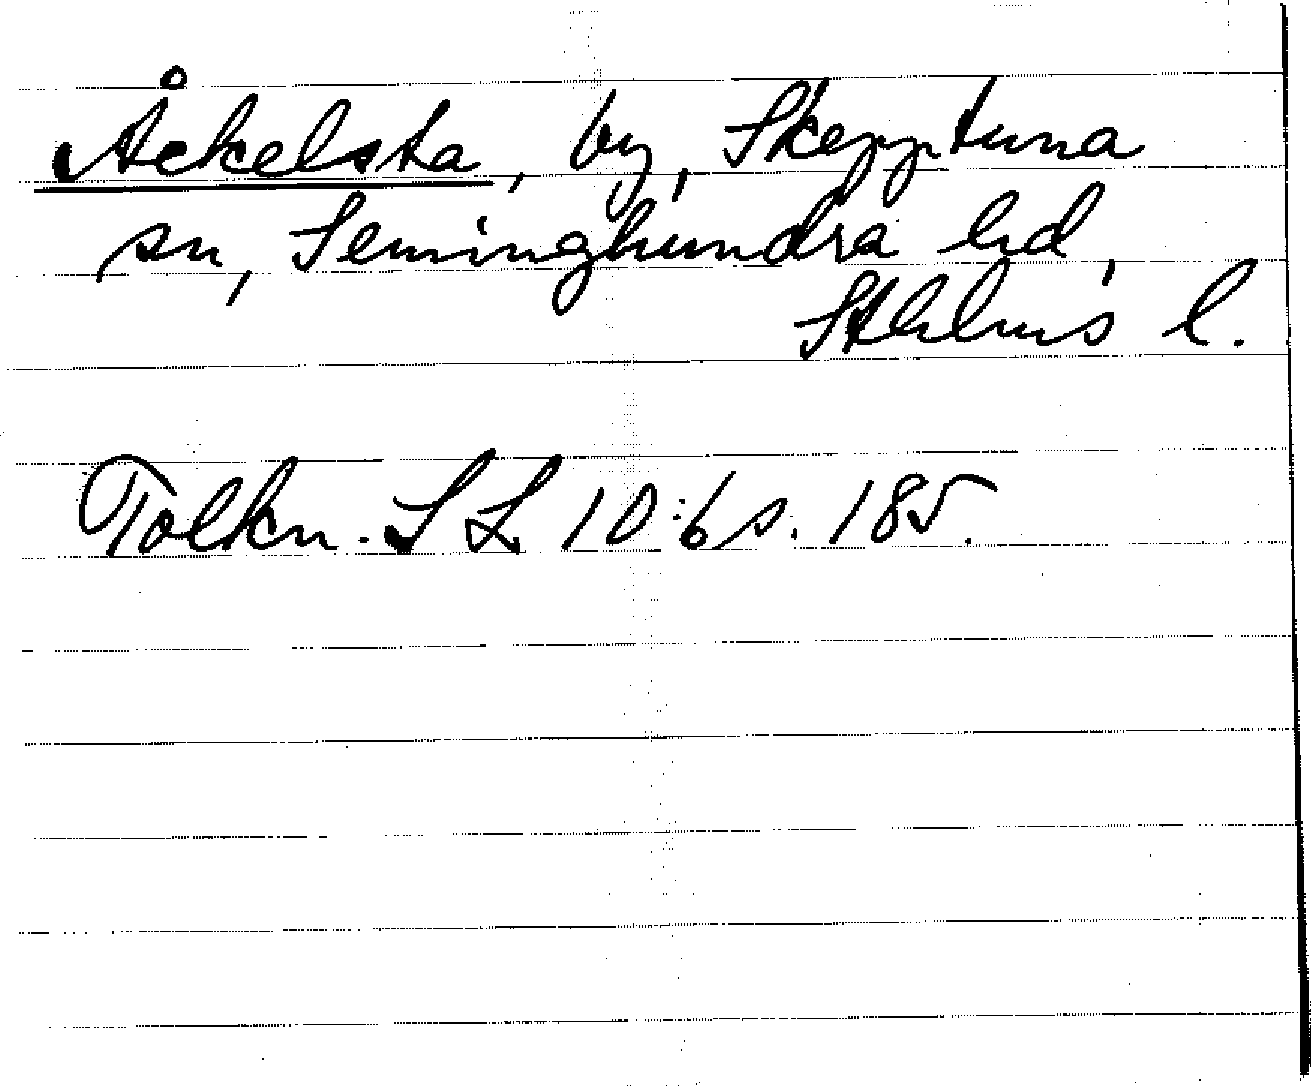 Åckelsta, by, Skepptuna
sn, Seminghundra hd,
Sthlms l.
Tolkn. SL 10:6 s. 185.